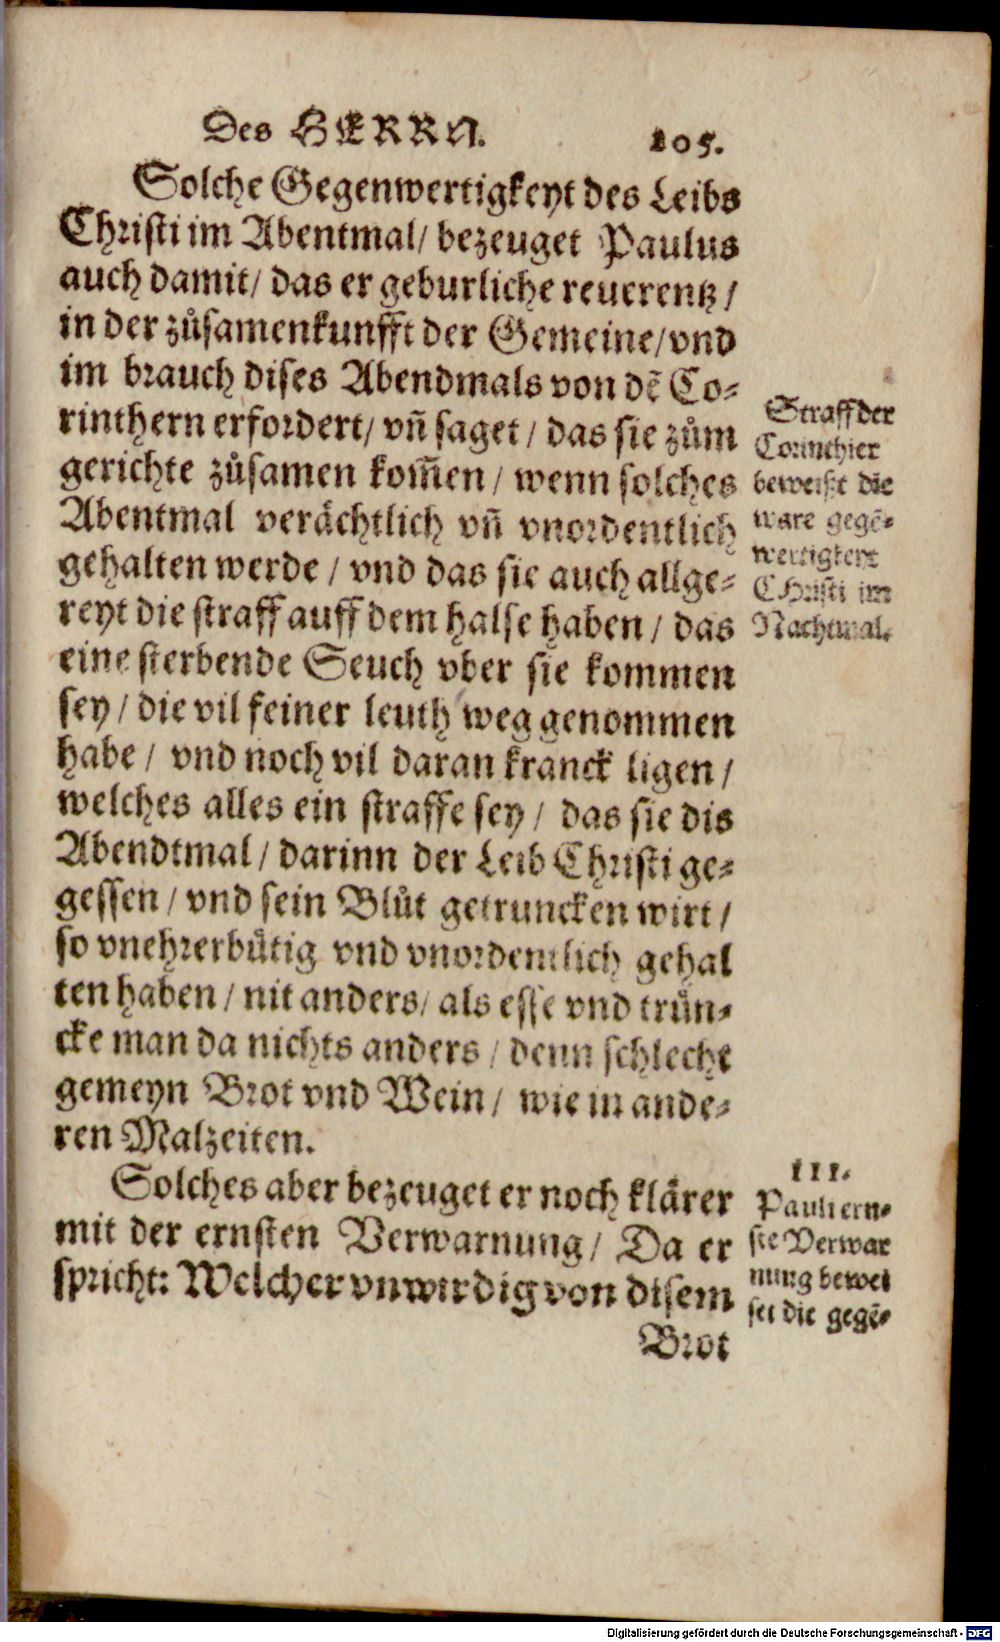 Des HERRN. 105.
Solche Gegenwertigkeyt des Leibs
Christi im Abentmal/ bezeuget Paulus
auch damit/ das er geburliche reuerentz/
in der zůsamenkunfft der Gemeine/ vnd
im brauch dises Abendmals von dẽ Co-
rinthern erfordert/ vñ saget/ das sie zům
gerichte zůsamen kom̃en/ wenn solches
Abentmal verächtlich vñ vnordentlich
gehalten werde/ vnd das sie auch allge-
reyt die straff auff dem halse haben/ das
eine sterbende Seuch vber sie kommen
sey/ die vil feiner leuth weg genommen
habe/ vnd noch vil daran kranck ligen/
welches alles ein straffe sey/ das sie dis
Abendtmal/ darinn der Leib Christi ge-
gessen/ vnd sein Blůt getruncken wirt/
so vnehrerbůtig vnd vnordentlich gehal
ten haben/ nit anders/ als esse vnd trůn-
cke man da nichts anders/ denn schlecht
gemeyn Brot vnd Wein/ wie in ande-
ren Malzeiten.
Solches aber bezeuget er noch klärer
mit der ernsten Verwarnung/ Da er
spricht: Welcher vnwirdig von disem
Brot
Straff der
Corinthier
beweißt die
ware gegẽ-
wertigkeyt
CHristi im
Nachtmal.
III.
Pauli ern-
ste Verwar
nung bewei
set die gegẽ-
Digitalisierung gefördert durch die Deutsche Forschungsgemeinschaft - DFG